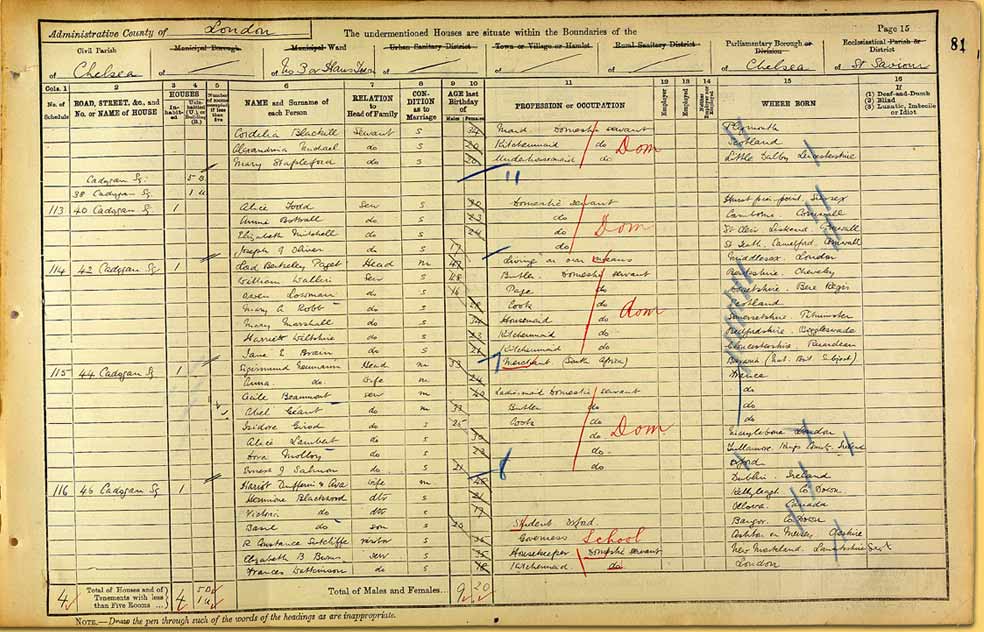 Administrative County of London
The undermentioned Houses are situate within the Boundaries of the
Page 15
81
Civil Parish
Municipal Borough
Municipal Ward
Urban Sanitary District
Town or Village or Hamlet
Rural Sanitary District
Parliamentary Borough or Division
Ecclesiastical Parish or District
of Chelsea
of
of No 3 or Hans Town
of
of
of
of Chelsea
of St Saviour
Cols. 1 2 3 4 5 6 7 8 9 10 11 12 13 14 15 16
No. of Schedule
ROAD, STREET, &c., and No. or NAME of HOUSE
HOUSES
Inhabited
Uninhabited (U.) or Building (B.)
Number of rooms occupied if less than five
NAME and Surname of each Person
RELATION to Head of Family
CONDITION as to Marriage
AGE last Birthday of
Males Females
PROFESSION or OCCUPATION
Employer
Employed
Neither Employer nor Employed
WHERE BORN
(1) Deaf-and-Dumb
(2) Blind
(3) Lunatic, Imbecile or Idiot
Cordelia Blackall Servant S 34 Maid Domestic servant Plymouth
Alexandrina do S 20 Kitchenmaid do Dom Scotland
Mary Stapleford do S 20 Underhousemaid do Little Dalby Leicestershire
Cadogan Sq. 5 B 11
38 Cadogan Sq 1 U
113 40 Cadogan Sq 1 Alice Todd Serv S Domestic servant Hurst pier point. Sussex
Annie do S do Dom Camborne Cornwall
Elizabeth Mitchell do S 24 do St Cleer Liskeard Cornwall
Joseph J Oliver do S 17 do Camelford Cornwall
114 42 Cadogan Sq 1 Berkeley Paget Head M 47 Living on own means Middlesex London
William Serv S 48 Butler Domestic servant
do S 16 Page do Dorsetshire. Bere Regis
Mary A Robb do S Cook do Dom Scotland
Mary Marshall do S Housemaid do Somersetshire
Harriett Wiltshire do S 23 Kitchenmaid do Bedfordshire. Biggleswade
Jane E Brain do S Kitchenmaid do Gloucestershire. Ruardean
115 44 Cadogan Sq 1 Sigismund Neumann Head M 33 Merchant (South Africa) 7 Bavaria (Nat. Brit Subject)
Anna do Wife M 24 France
Cecile Beaumont Serv M 40 Ladies maid Domestic servant do
do M 33 Butler do do
Isidore Girod do S 25 Cook do Dom do
Alice Lambert do S 30 do Marylebone London
Dora Molloy do S do Tullamore. Kings County. Ireland
Ernest J Salmon do S 21 do 8 Oxford
116 46 Cadogan Sq 1 Harriot Dufferin & Ava Wife M 48 Dublin. Ireland
Hermione Blackwood dtr S 21 Killyleagh Co Down
Victoria do dtr S 17 Ottawa. Canada
Basil do son S 20 Student Oxford Bangor. Co Down
R Constance Sutcliffe visitor S Governess School Ashton on Mersey Cheshire
Elizabeth B Serv S Housekeeper Domestic servant Lanarkshire
Frances do S 18 Kitchenmaid do London
4 Total of Houses and of Tenements with less than Five Rooms ... 4 5 B 1 U
Total of Males and Females... 9 20
NOTE.—Draw the pen through such of the words of the headings as are inappropriate.